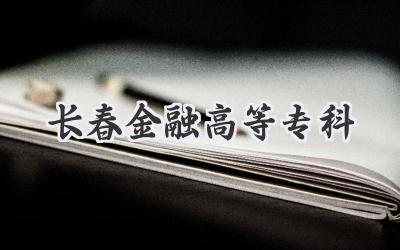 长春金融高等专科